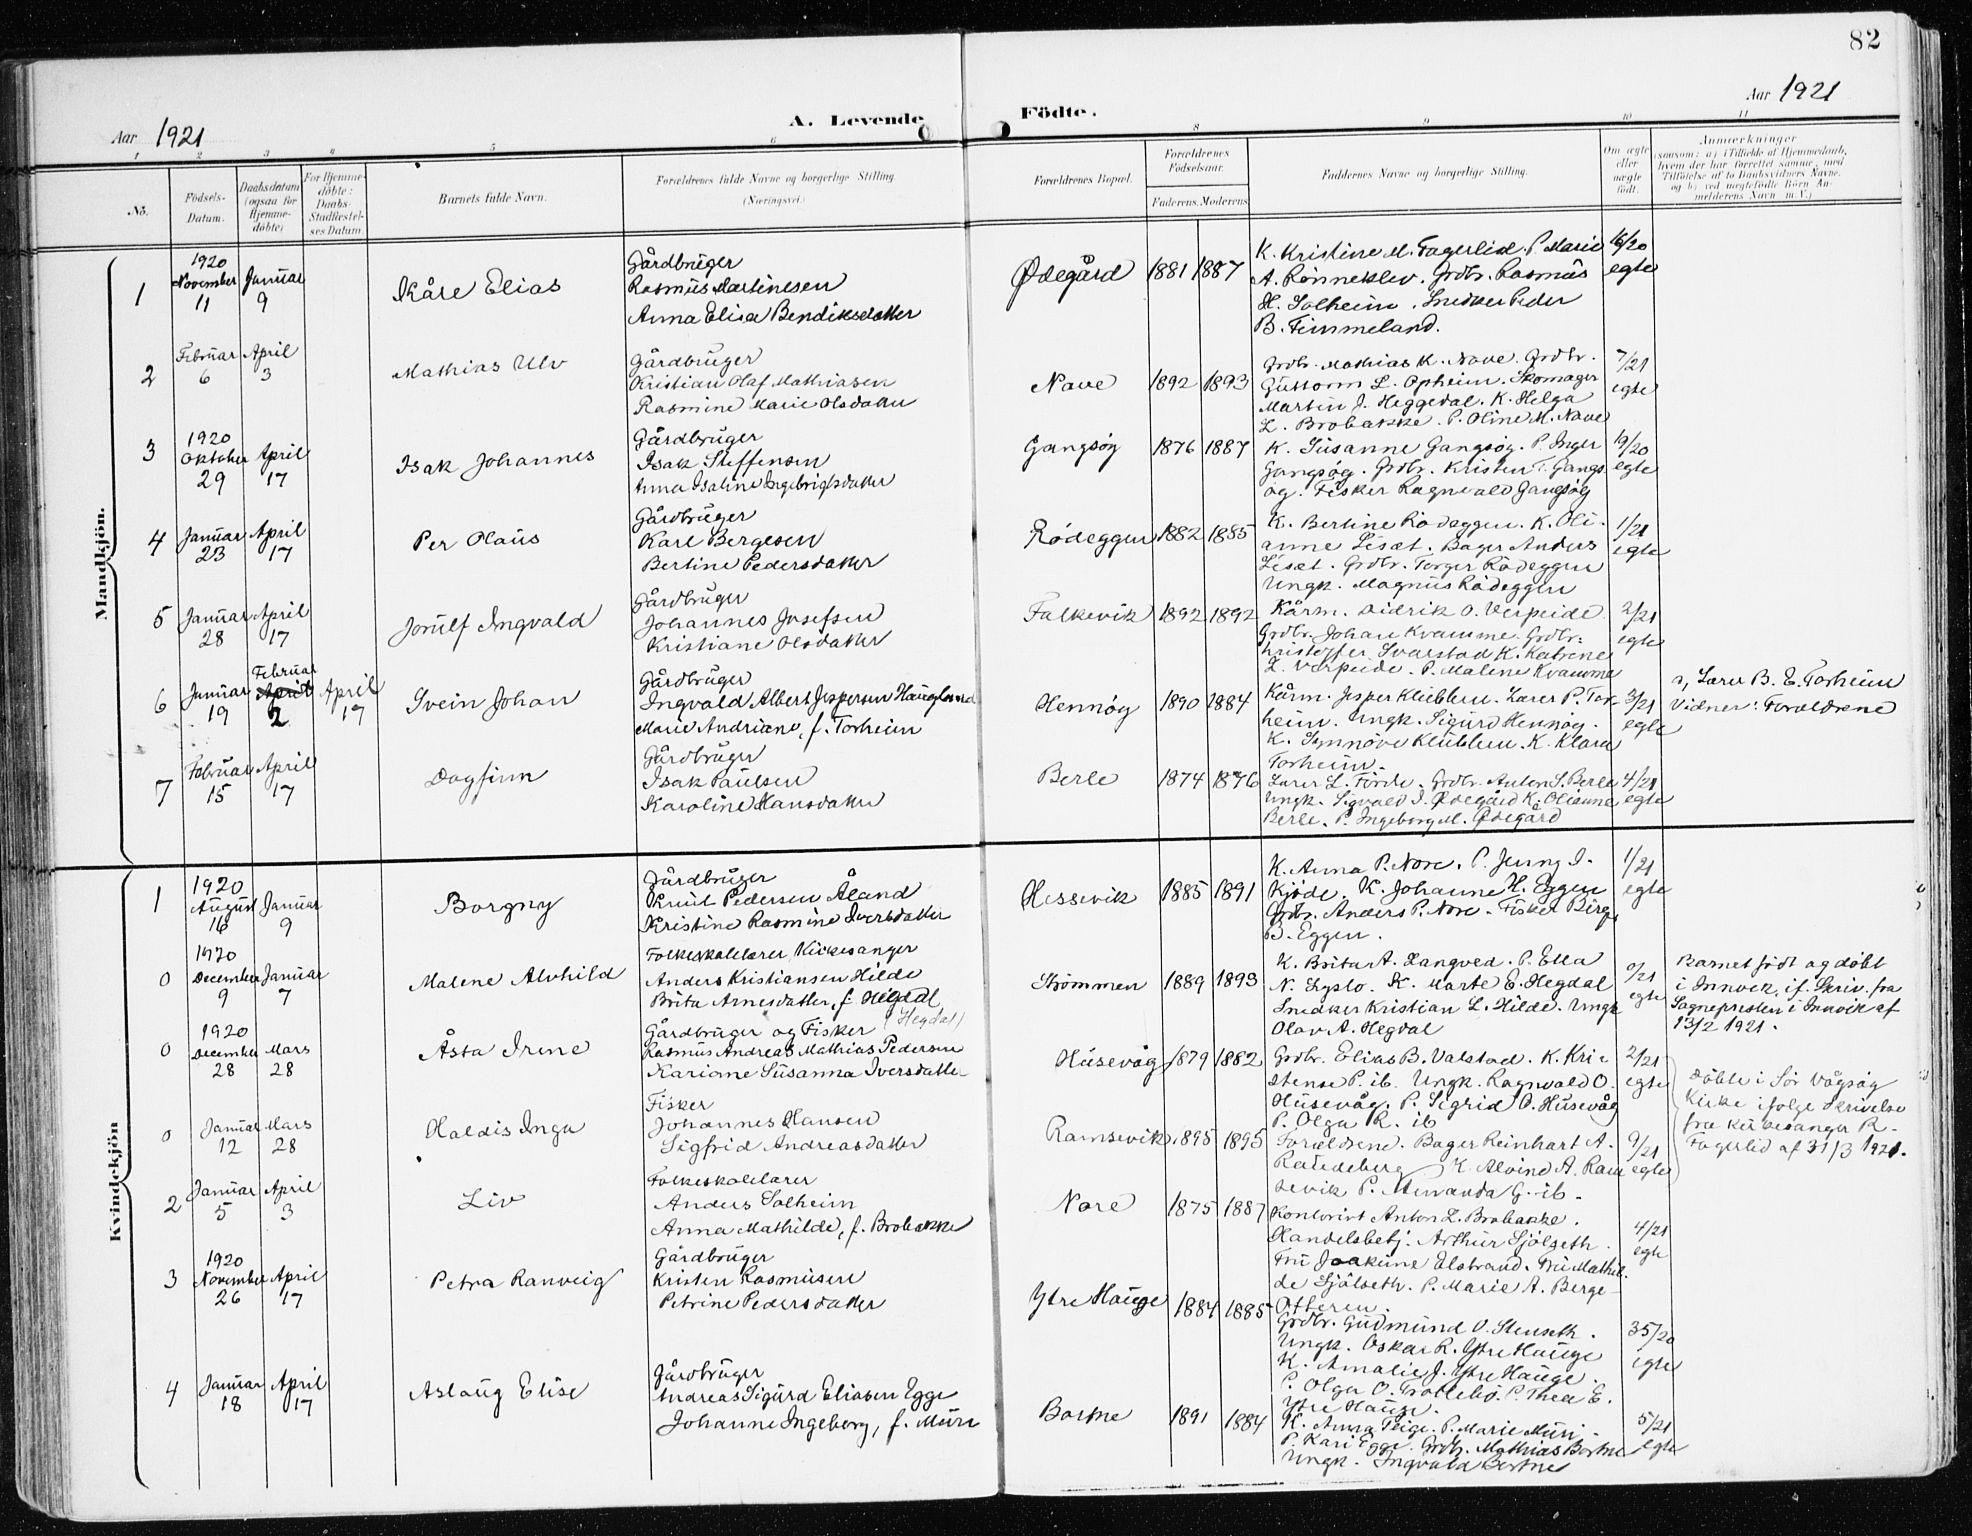 82
Aar 1921
A. Levende Födte.
Aar 1921
1 2 3 4 5 6 8 9 10 11
No.
Födsels-Datum.
Daabsdatum (ogsaa for Hjemme-döbte)
For Hjemme-döbte: Daabs-Stadfæstel-ses Datum.
Barnets fulde Navn.
Forældrenes fulde Navne og borgerlige Stilling
(Næringsvei.)
Forældrenes Bopæl.
Forældrenes Födselsaar.
Faderens. Moderens.
Faddernes Navne og borgerlige Stilling.
Om ægte eller uægte födt.
Anmærkninger
(saasom: a) i Tilfælde af Hjemmedaab,
hvem der har forrettet samme, med
Tilföielse af to Daabsvidners Navne.
og b) ved uægtefödte Börn An-
melderens Navn m.V.)
Mandkjön.
1
1920 November 11
Januar 9
Kåre Elias
Gårdbruger
Rasmus Martinesen
Anna Elisa Bendiksdatter
Ødegård
1881 1887
K. Kristine M. Fagerlid. P. Marie
A. Rønneklev. Grdbr. Rasmus
H. Solheim. Snedker Peder
B. Fimmeland.
16/20 egte
2
Februar 6
April 3
Mathias Ulv
Gårdbruger
Kristian Olaf Mathiasen
Rasmine Marie Olsdatter
Nave
1892 1893
Grdbr. Mathias K. Nave. Grdbr.
Guttorm L. Opheim. Skomager
Martin J. Heggedal. K. Helga
L. Brobakke. P. Oline M. Nave
7/21 egte
3
1920 Oktober 29
April 17
Isak Johannes
Gårdbruger
Isak Steffensen
Anna Isaline Ingebrigtsdatter
Gangsøy
1876 1887
K. Susanne Gangsøy. P. Inger
Gangsøy. Grdbr. Kristen T. Gangs
øy. Fisker Ragnvald Gangsøy
19/20 egte
4
Januar 23
April 17
Per Olaus
Gårdbruger
Karl Bergesen
Bertine Pedersdatter
Rødeggen
1882 1885
K. Bertine Rødeggen. K. Oli-
anne Lisæt. Bager Anders
Lisæt. Grdbr. Torger Rødeggen
Ungk. Magnus Rødeggen
1/21 egte
5
Januar 28
April 17
Jorulf Ingvald
Gårdbruger
Johannes Josefsen
Kristiane Olsdatter
Falkevik
1892 1892
Kårm. Didrik O. Verpeide
Grdbr. Johan Kvamme. Grdbr.
Kristoffer Svarstad K. Katrine
L. Verpeide. P. Malene Kvamme
2/21 egte
6
Januar 19
Februar April 2
April 17
Svein Johan
Gårdbruger
Ingvald Albert Jespersen Haugland
Marie Andriane, f. Torheim
Hennøy
1890 1884
Kårm. Jesper Klubben. Lærer P. Tor-
heim. Ungk. Sigurd Hennøy.
K. Synnøve Klubben. K. Klara
Torheim.
3/21 egte
a, Lærer B. E. Torheim
Vidner: Forældrene
7
Februar 15
April 17
Dagfinn
Gårdbruger
Isak Paulsen
Karoline Hansdatter
Berle
1874 1876
Lærer L. Førde. Grdbr. Anton S. Berle
Ungk. Sigvald I. Ødegård K. Olianne
Berle. P. Ingeborg M. Ødegård
4/21 egte
Kvindekjön
1
1920 August 16
Januar 9
Borgny
Gårdbruger
Knut Pedersen Åland
Kristine Rasmine Iversdatter
Hessevik
1885 1891
K. Anna P. Nore. P. Jenny I.
Kjøde. K. Johanne H. Eggen
Grdbr. Anders P. Nore. Fisker Birger
B. Eggen.
1/21 egte
0
1920 December 9
Januar 7
Malene Alvhild
Folkeskolelærer, Kirkesanger
Anders Kristiansen Hilde
Brita Arnesdatter, f. Hegdal
(Hegdal)
Strømmen
1889 1893
K. Brita A. Hangved. P. Ella
N. Lyslo. K. Marte E. Hegdal
Snedker Kristian L. Hilde. Ungk
Olav A. Hegdal
0/21 egte
Barnet født og døbt
i Innvik, if. Skriv. fra
Sognepresten i Innvik af
13/2 1921.
0
1920 December 28
Mars 28
Åsta Irene
Gårdbruger og Fisker
Rasmus Andreas Mathias Pedersen
Kariane Susanna Iversdatter
Husevåg
1879 1882
Grdbr. Elias B. Vatstad. K. Kri-
stense P. ib. Ungk. Ragnvald O.
Husevåg. P. Sigrid O. Husevåg
P. Olga R. ib
2/21 egte
Døbte i Sør Vågsøy
Kirke ifølge skrivelse
fra kirkesanger R.
Fagerlid af 31/3 1921.
0
Januar 12
Mars 28
Haldis Inga
Fisker
Johannes Hansen
Sigfrid Andreasdatter
Ramsevik
1895 1895
Forældrene. Bager Reinhart A.
Raudeberg K. Alvind A. Ram
sevik P. Miranda G. ib.
9/21 egte
2
Januar 5
April 3
Liv
Folkeskolelærer
Anders Solheim
Anna Mathilde, f. Brobakke
Nore
1875 1887
Kontorist Anton L. Brobakke.
Handelsbetj. Arthur Sjølseth.
Fru Joakime Elstrand. Fru Mathil-
de Sjølseth. P. Marie A. Berge-
Otteren.
4/21 egte
3
1920 November 26
April 17
Petra Ranveig
Gårdbruger
Kristen Rasmusen
Petrine Pedersdatter
Ytre Hauge
1884 1885
Grdbr. Gudmund O. Stenseth.
Ungk. Oskar R. Ytre Hauge
K. Amalie J. Ytre Hauge.
P. Olga O. Trollebø. P. Thea E.
Ytre Hauge.
35/20 egte
4
Januar 18
April 17
Aslaug Elise
Gårdbruger
Andreas Sigurd Eliasen Egge
Johanne Ingeborg, f. Muri
Bortne
1891 1884
K. Anna Teige. P. Marie Muri.
P. Kari Egge. Grdbr. Mathias Bortne
Ungk. Ingvald Bortne
5/21 egte